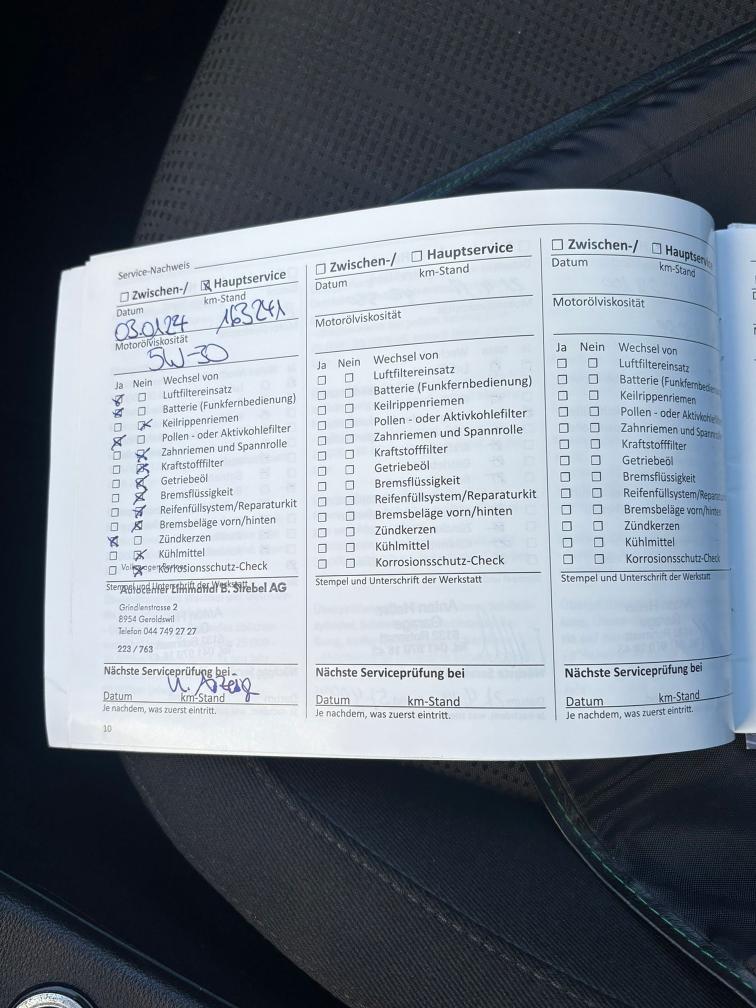 Service-Nachweis
☐ Zwischen-/ ☒ Hauptservice
Datum km-Stand
03.01.24 163241
Motorölviskosität
5W-30
Ja Nein Wechsel von
☒ ☐ Luftfiltereinsatz
☒ ☐ Batterie (Funkfernbedienung)
☐ ☒ Keilrippenriemen
☒ ☐ Pollen - oder Aktivkohlefilter
☐ ☒ Zahnriemen und Spannrolle
☐ ☒ Kraftstofffilter
☐ ☒ Getriebeöl
☐ ☒ Bremsflüssigkeit
☐ ☒ Reifenfüllsystem/Reparaturkit
☐ ☒ Bremsbeläge vorn/hinten
☒ ☐ Zündkerzen
☐ ☒ Kühlmittel
☐ ☒ Korrosionsschutz-Check
Stempel und Unterschrift der Werkstatt
Autocenter Limmattal B. Strebel AG
Grindlenstrasse 2
8954 Geroldswil
Telefon 044 749 27 27
223 / 763
Nächste Serviceprüfung bei
Datum km-Stand
Je nachdem, was zuerst eintritt.
10
☐ Zwischen-/ ☐ Hauptservice
Datum km-Stand
Motorölviskosität
Ja Nein Wechsel von
☐ ☐ Luftfiltereinsatz
☐ ☐ Batterie (Funkfernbedienung)
☐ ☐ Keilrippenriemen
☐ ☐ Pollen - oder Aktivkohlefilter
☐ ☐ Zahnriemen und Spannrolle
☐ ☐ Kraftstofffilter
☐ ☐ Getriebeöl
☐ ☐ Bremsflüssigkeit
☐ ☐ Reifenfüllsystem/Reparaturkit
☐ ☐ Bremsbeläge vorn/hinten
☐ ☐ Zündkerzen
☐ ☐ Kühlmittel
☐ ☐ Korrosionsschutz-Check
Stempel und Unterschrift der Werkstatt
Nächste Serviceprüfung bei
Datum km-Stand
Je nachdem, was zuerst eintritt.
☐ Zwischen-/ ☐ Hauptservice
Datum km-Stand
Motorölviskosität
Ja Nein Wechsel von
☐ ☐ Luftfiltereinsatz
☐ ☐ Batterie (Funkfernbedien
☐ ☐ Keilrippenriemen
☐ ☐ Pollen - oder Aktivkohlefilter
☐ ☐ Zahnriemen und Spannro
☐ ☐ Kraftstofffilter
☐ ☐ Getriebeöl
☐ ☐ Bremsflüssigkeit
☐ ☐ Reifenfüllsystem/Repara
☐ ☐ Bremsbeläge vorn/hinten
☐ ☐ Zündkerzen
☐ ☐ Kühlmittel
☐ ☐ Korrosionsschutz-Check
Stempel und Unterschrift der Werkstatt
Nächste Serviceprüfung bei
Datum km-Stand
Je nachdem, was zuerst eintritt.